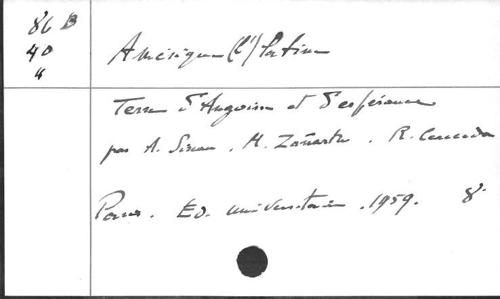 86 B
40
4
Amérique (l') latine
Terre d'Angoisse et d'espérance
par A. Simon . M. Zañartu . R.
Paris. Ed. universitaires . 1959. 8°